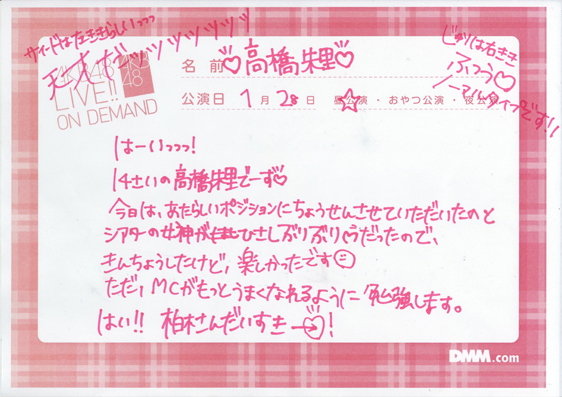 サイドは左ききらしいっっっ
天才だッッツツツツッ
じゅりは右きき
ふつう♡
ノーマルタイプです!!
AKB48
LIVE!!
ON DEMAND
AKB
48
名 前 ♡高橋朱里♡
公演日 1 月 28 日 ☆公演・おやつ公演・夜公演
はーいっっっ!
14さいの高橋朱里でーす♡
今日は、あたらしいポジションにちょうせんさせていただいたのと
シアターの女神がひさしぶりぶりぐらだったので、
きんちょうしたけど、楽しかったです☺
ただ、MCがもっとうまくなれるように勉強します。
はい!! 柏木さんだいすきー♡!
DMM.com